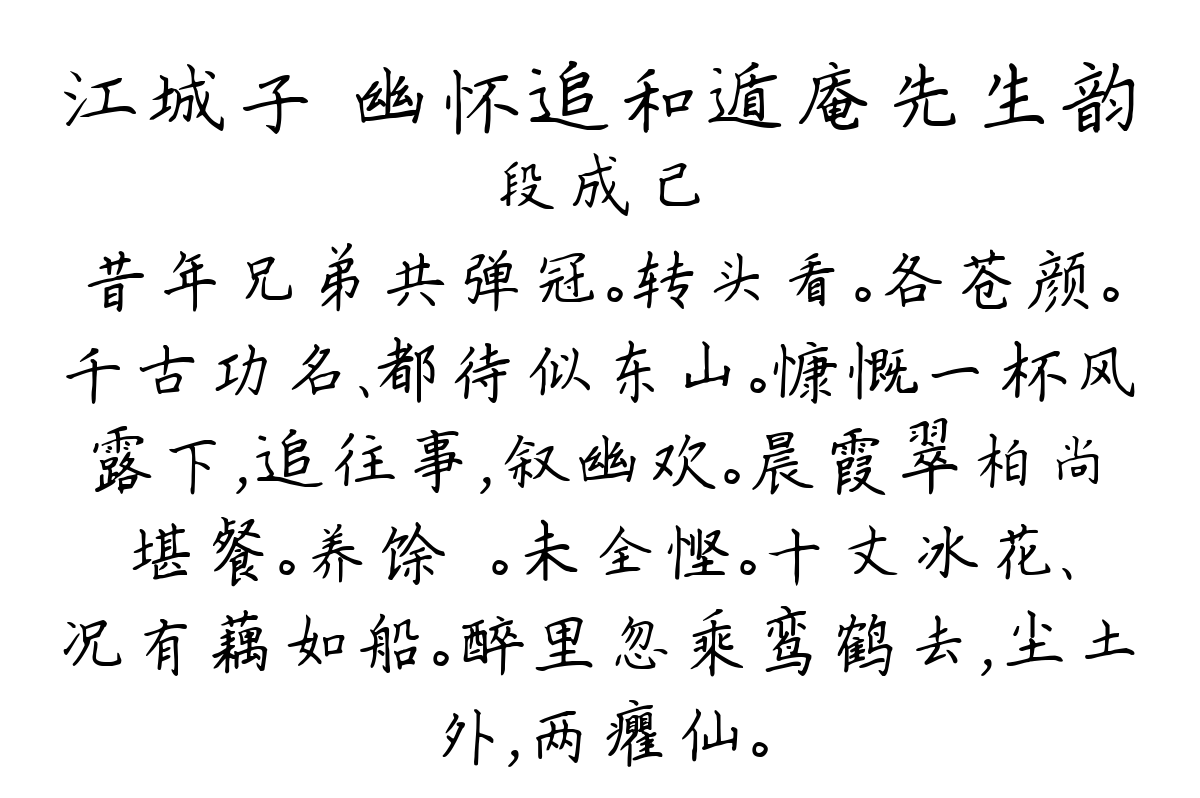 江城子 幽怀追和遁庵先生韵
段成己
昔年兄弟共弹冠。转头看。各苍颜。
千古功名、都待似东山。慷慨一杯风
露下,追往事,叙幽欢。晨霞翠柏尚
堪餐。养馀 。未全悭。十丈冰花、
况有藕如船。醉里忽乘鸾鹤去,尘土
外,两癯仙。